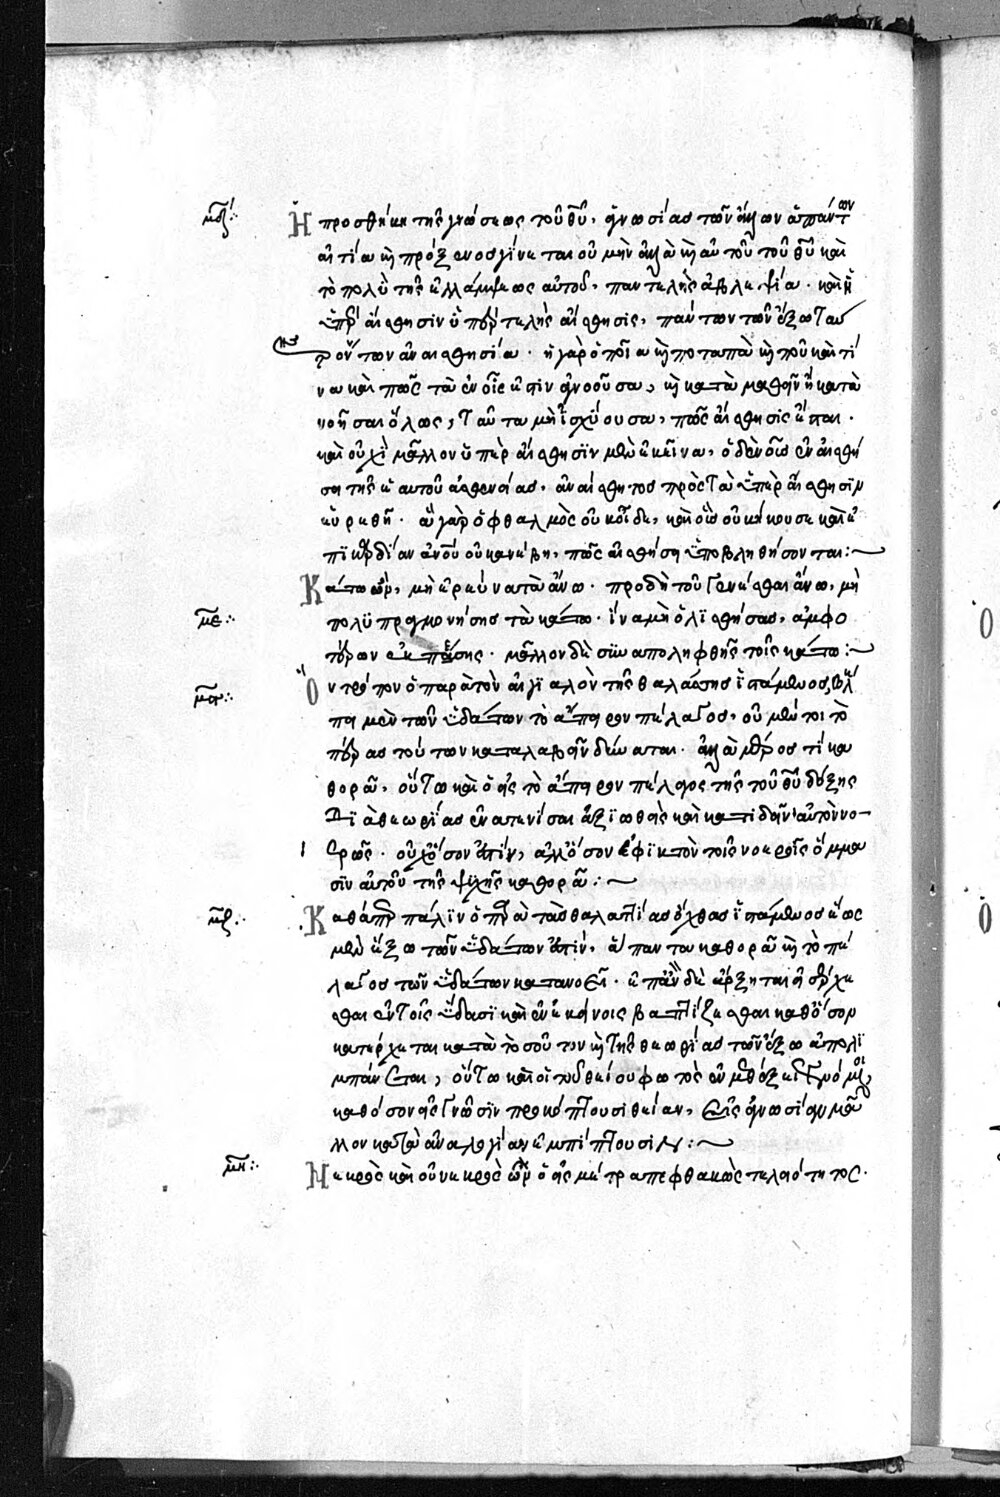 μδ:
Ἡ προσθήκη τῆς γνώσεως τοῦ θῦ, ἀγνωσίας τῶν ἄλλων ἁπάντων
αἰτία καὶ πρόξενος γίνεται οὐ μὴν ἀλλὰ καὶ αὐτοῦ τοῦ θῦ καὶ
τὸ πολὺ τῆς ἐλλάμψεως αὐτοῦ, παντελὴς ἀβλεψία· καὶ ἡ
ὑπὲρ αἴσθησιν ὑπερτελὴς αἴσθησις, πάντων τῶν ἔξω ταύ
της ὄντων ἀναισθησία· ἡ γὰρ ὁποία καὶ ποταπὰ καὶ ποῦ καὶ τί
να καὶ πῶς τὰ ἐν οἷς ἐστιν ἀγνοοῦσα, καὶ καταμαθεῖν ἢ κατα
νοῆσαι ὅλως, ταῦτα μὴ ἰσχύουσα, πῶς αἴσθησις ἔσται·
καὶ οὐχὶ μᾶλλον ὑπὲρ αἴσθησϊν μὲν ἐκεῖνα, ὁ δὲ νοῦς ἐν αἰσθή
σει τῆς ἑαυτοῦ ἀσθενείας, ἀναίσθητος πρὸς τὰ ὑπὲρ αἴσθησϊν
εὑρεθῆ· ἃ γὰρ ὀφθαλμὸς οὐκ οἶδε, καὶ οὖς οὐκ ἤκουσε καὶ ἐ
πϊ καρδίαν ἀνοῦ οὐκ ἀνέβη, πῶς αἰσθήσει ὑποβληθήσονται:
με:
Κάτω ὢν, μὴ ἐρεύνα τὰ ἄνω· πρὸ δὲ τοῦ γενέσθαι ἄνω, μὴ
πολϋπραγμονήσης τὰ κάτω· ἵνα μὴ ὀλϊσθήσας, ἀμφο
τέρων ἐκπέσης· μᾶλλον δὲ συναποληφθῆς τοῖς κάτω:
μς:
Ὃν τρόπον ὁ παρὰ τὸν αἰγϊαλὸν τῆς θαλάσσης ἱστάμενος, βλέ
πει μὲν τῶν ὑδάτων τὸ ἄπειρον πέλαγος, οὐ μέντοι τὸ
πέρας τούτων καταλαβεῖν δύναται· ἀλλὰ μέρος τί κα
θορᾶ, οὕτω καὶ ὁ εἰς τὸ ἄπειρον πέλαγος τῆς τοῦ θῦ δόξης
δϊὰ θεωρίας ἐνατενίσαι ἀξϊωθεὶς καὶ κατιδεῖν αὐτὸν νο
ερῶς· οὐχ ὅσον ἐστὶν, ἀλλ' ὅσον ἐφϊκτὸν τοῖς νοεροῖς ὄμμα
σϊν αὐτοῦ τῆς ψυχῆς καθορᾶ:
μζ:
Καθάπερ πάλϊν ὁ παρὰ τὰς θαλαττίας ὄχθας ἱστάμενος ἕως
μὲν ἔξω τῶν ὑδάτων ἐστὶν, ἅπαντα καθορᾶ καὶ τὸ πέ
λαγος τῶν ὑδάτων κατανοεῖ· ἐπὰν δὲ ἄρξηται εἰσέρχε
σθαι ἐν τοῖς ὕδασϊ καὶ ἐν ἐκείνοις βαπτίζεσθαι καθ' ὅσον
κατέρχεται κατὰ τοσοῦτον καὶ τῆς θεωρίας τῶν ἔξω ἀπολϊ
μπάνεται, οὕτω καὶ οἱ τοῦ θείου φωτὸς ἐν μεθέξει γενόμενοι,
καθόσον εἰς γνῶσϊν προκόπτουσι θείαν, εἰς ἀγνωσίαν μᾶ
λλον κατὰ ἀναλογίαν ἐμπίπτουσιν:
μη:
Νεκρὸς καὶ οὐ νεκρὸς ὢν ὁ εἰς μέτρα πεφθακὼς τελειότητος·